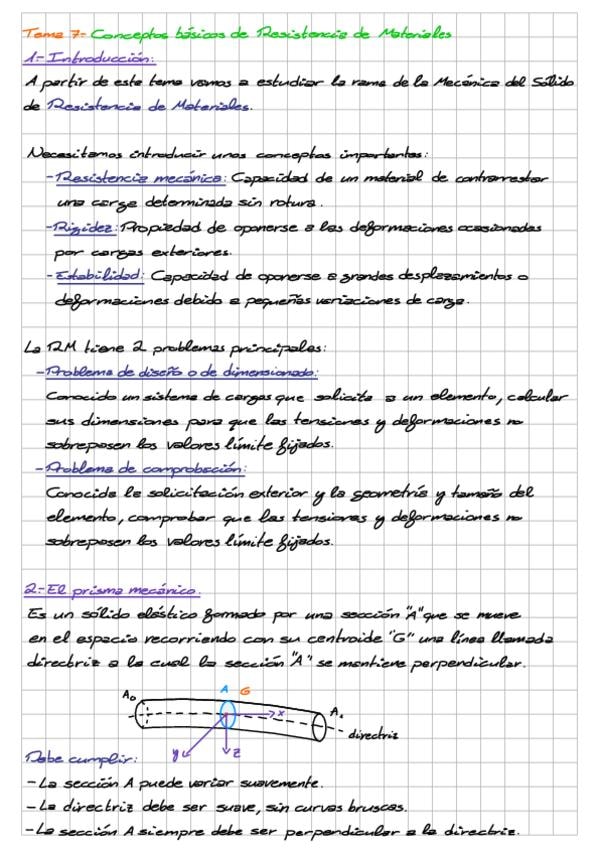 Tema 7- Conceptos básicos de Resistencia de Materiales
1- Introducción:
A partir de este tema vamos a estudiar la rama de la Mecánica del Sólido
de Resistencia de Materiales.
Necesitamos introducir unos conceptos importantes:
-Resistencia mecánica: Capacidad de un material de contrarrestar
una carga determinada sin rotura.
-Rigidez: Propiedad de oponerse a las deformaciones ocasionadas
por cargas exteriores.
-Estabilidad: Capacidad de oponerse a grandes desplazamientos o
deformaciones debido a pequeñas variaciones de carga.
La RM tiene 2 problemas principales:
-Problema de diseño o de dimensionado:
Conocido un sistema de cargas que solicita a un elemento, calcular
sus dimensiones para que las tensiones y deformaciones no
sobrepasen los valores límite fijados.
-Problema de comprobación:
Conocida la solicitación exterior y la geometría y tamaño del
elemento, comprobar que las tensiones y deformaciones no
sobrepasen los valores límite fijados.
2- El prisma mecánico.
Es un sólido elástico formado por una sección "A" que se mueve
en el espacio recorriendo con su centroide "G" una línea llamada
directriz a la cual la sección "A" se mantiene perpendicular.
A₀ A G
x A₁
directriz
y z
Debe cumplir:
-La sección A puede variar suavemente.
-La directriz debe ser suave, sin curvas bruscas.
-La sección A siempre debe ser perpendicular a la directriz.